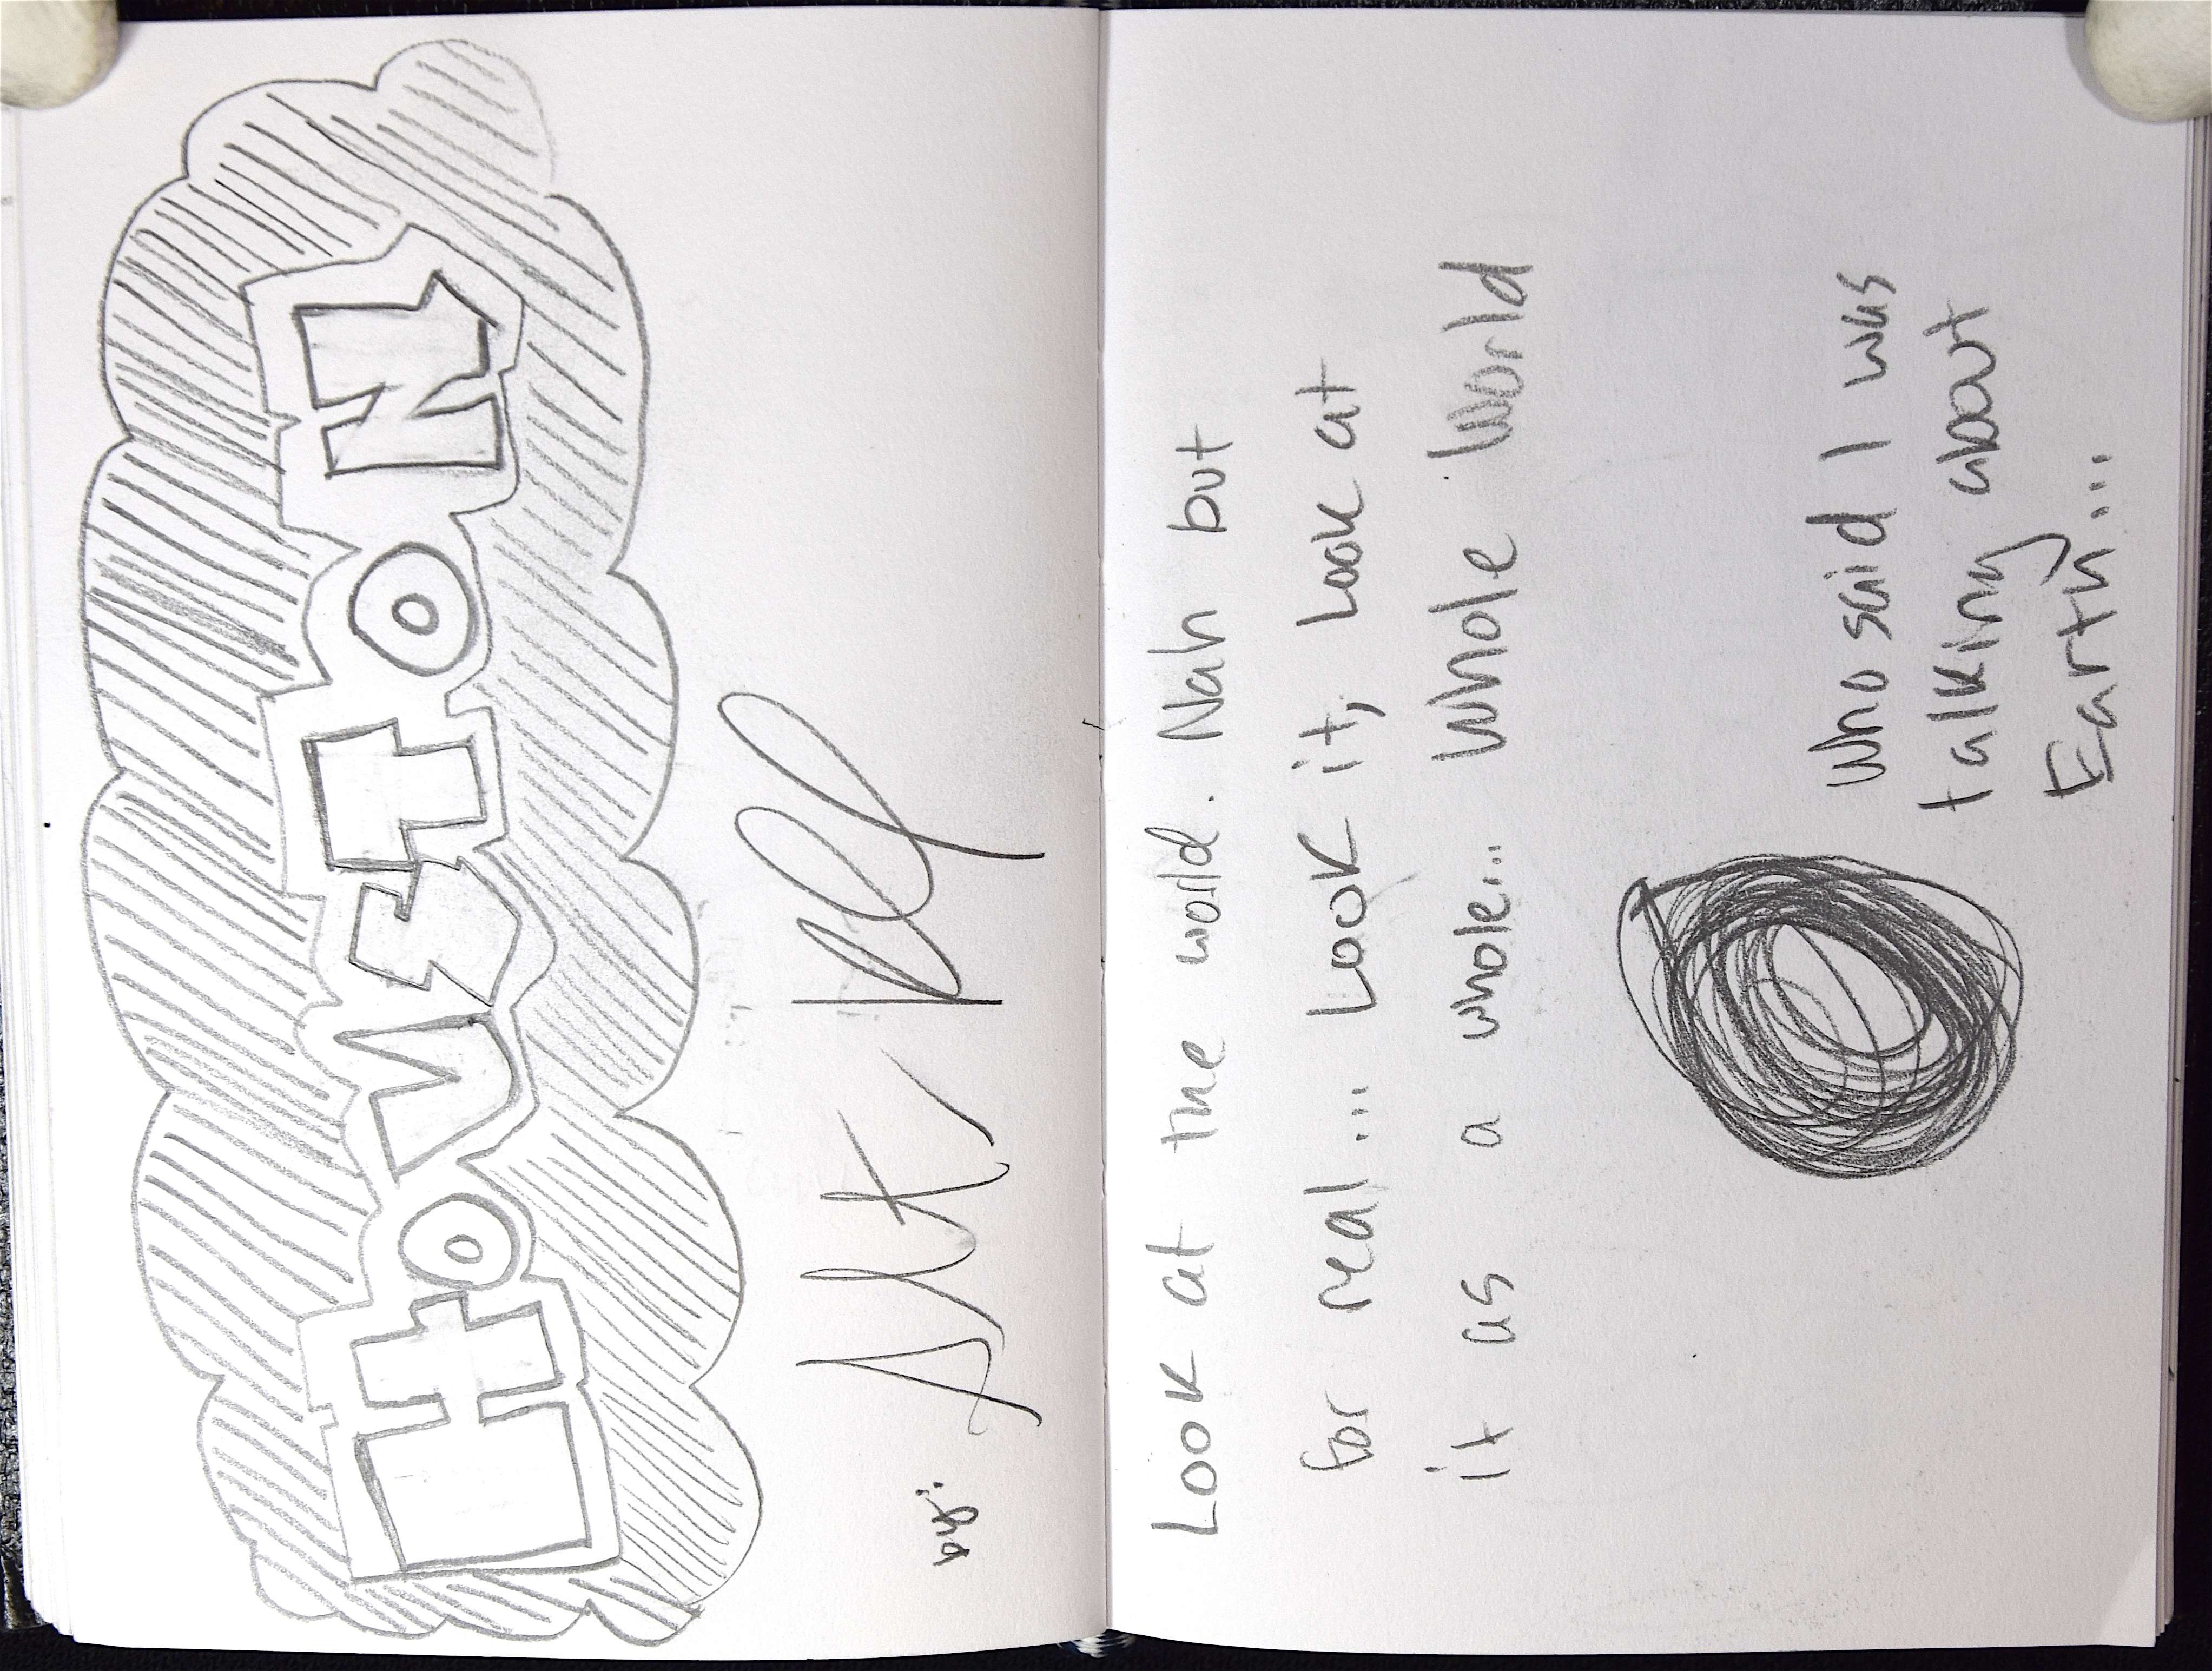 HOUSTON
by:
Look at the world. Nah but
for real... Look it, Look at
it as a whole... Whole World
who said I was
talking about
Earth...